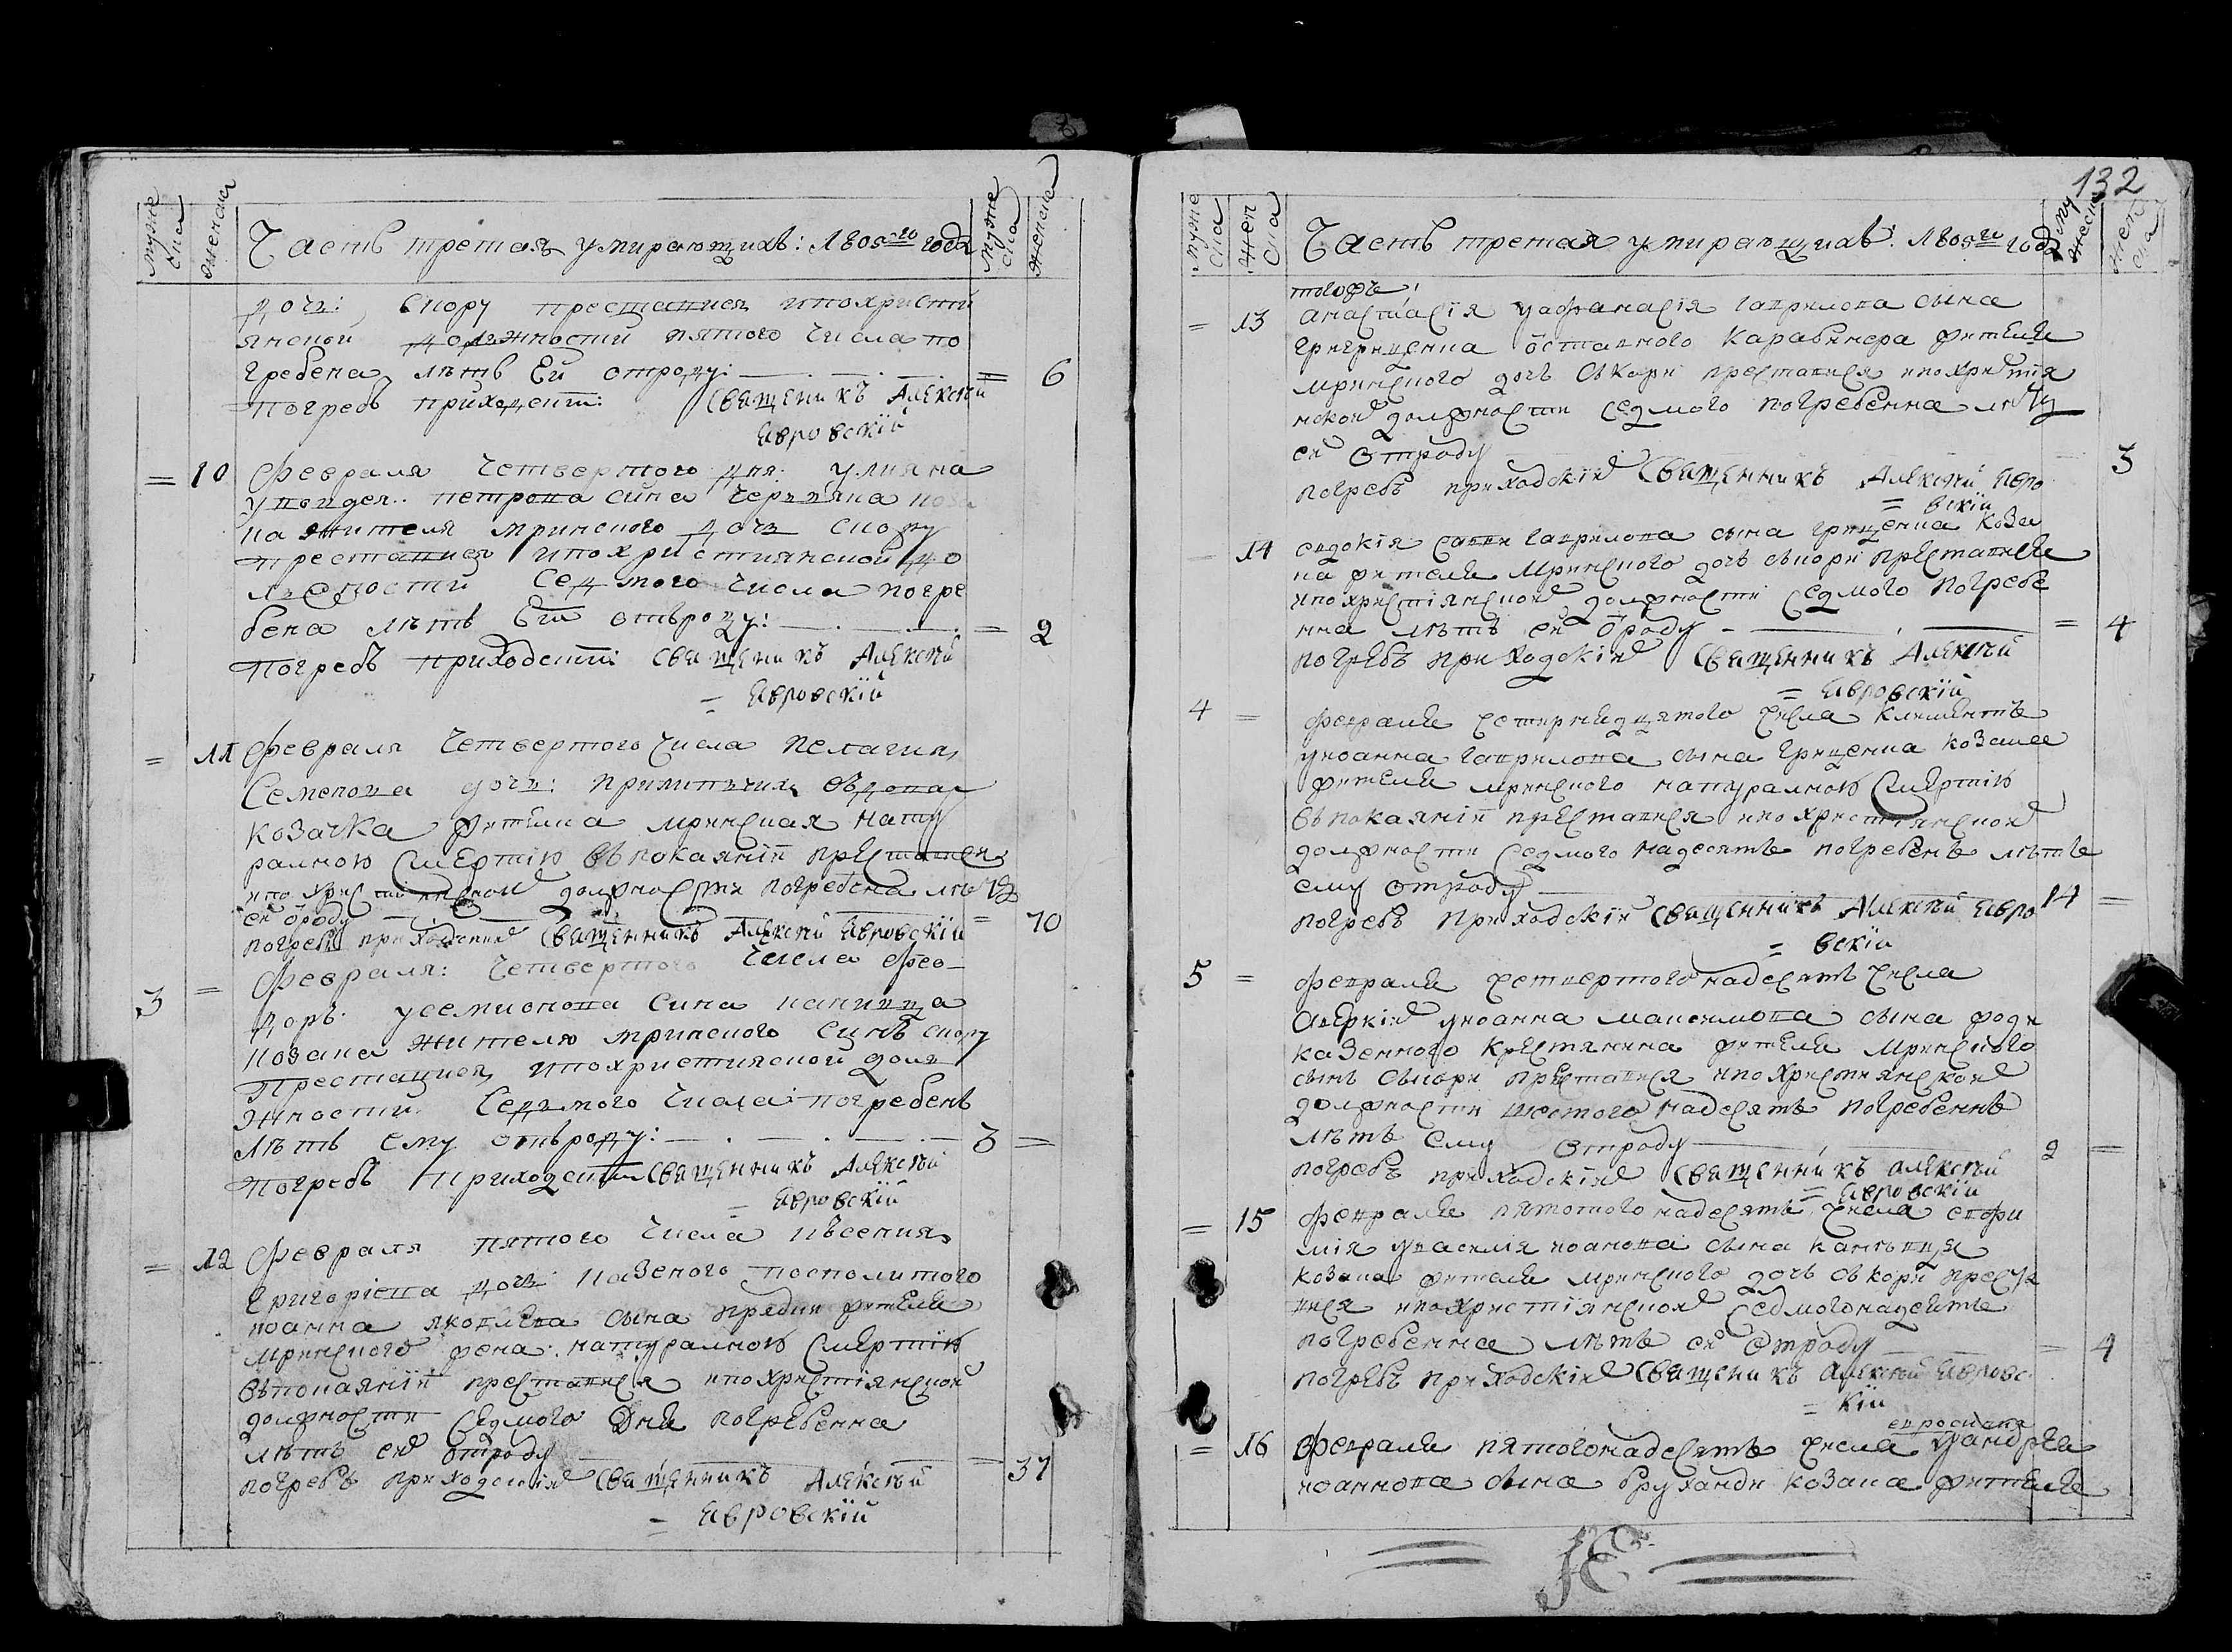 муже ска
женска
Часть третая умирающихъ: 1805го года
муже ска
женска
дочь: скору преставися ипохристи
янской должности пятого числа по
гребена лѣтъ Ей отроду: = 6
Погребъ приходскій Священикъ Алексѣй
Явровскїй
= 10 Февраля четвертого дня: улияна
петрова сина
на жителя мринского дочь скору
Преставися ипохристиянской до
лжности Седмого числа погре
бена лѣтъ Ей отвроду: = 2
Погребъ приходскій Священикъ Алексѣй
= Явровскїй
= 11 Февраля четвертого числа Пелагия
Семенова дочь: вдова
козачка жителка мринская нату
ралною Смертїю въ покаянїи преставися
ипо християнской должности погребена лѣтъ
ей ѿроду = 70
погребъ приходский Священникъ Алексѣй Явровскїй
3 = Февраля: четвертого числа Фео
доръ усемионова сина
козака жителю мринского синъ скору
Преставися ипохристиянской долж
жности Седъмого числа погребенъ
лѣтъ ему отвроду: 3 =
Погребъ приходскій Священникъ Алексѣй
= Явровскїй
= 12 Февраля пятого числа Ивсения
Григоріева дочь казеного посполитого
иоанна яковлева сына прядки жителя
мринского жена: натуралною Смертїю
въпокаянїи преставися ипохристіянской
должности Седмого дня погребенна
лѣтъ ей отроду = 37
погребъ приходскій Священникъ Алексѣй
= Явровскїй
132
муже ска
жен ска
Часть третая умирающихъ: 1805го года
му жеск
жен ска
тогожъ:
= 13 Анастасія уафанасія гаврилова сына
отставного карабинера жителя
мринского дочь вскори преставися ипохристія
нской должности седмого погребенна лѣтъ
ей отроду = 3
погребъ приходскій Священникъ Алексѣй Явро
= вскїй
= 14 евдокія савви гаврилова сына гриценка коза
ка жителя мринского дочь вскори преставися
ипохристіянской должности седмого погребе
нна лѣтъ ей ѿроду = 4
погребъ приходскій Священникъ Алексѣй
= Явровскїй
4 = Февраля числа климентъ
уиоанна гаврилова сына гриценка козака
жителя мринского натуралною Смертїю
въпокаянїи преставися ипохристіянской
должности Седмого надесять погребенъ лѣтъ
ему отроду 14 =
погребъ приходскій Священникъ Алексѣй Явро
= вскїй
5 = Февраля четвертого надесять числа
Аверкій уиоанна максимова сына
казенного крестянина жителя мринского
сынъ вскори преставися ипохристиянской
должности шестого надесять погребеннъ
лѣтъ ему отроду 2 =
погребъ приходскій Священникъ алексѣй
= Явровскїй
= 15 Февраля пятотого надесять числа евфи
мія увасилія иоанова сына
козака жителя мринского дочь вскори преста
вися ипохристіянской Седмогонадесять
погребенна лѣтъ ей отроду = 4
погребъ приходскій Священикъ Алексѣй Явровс
= кїй
= 16 Февраля пятогонадесять числа уандрея
иоаннова сына бруханди козака жителя